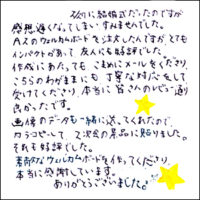 秋に結婚式だったのですが
感想遅くなってしまいすみませんでした。
A2のウェルカムボードを注文したんですがとても
インパクトがあって友人にも好評でした。
作成にあたっても、こまめにメールをくださり、
こちらのわがままにも丁寧な対応をして
受けてくださり、本当に皆さんのレビュー通り
良かったです。
画像のデータも一緒に送ってくれたので、
カラーコピーして2次会の会場に貼りました。
それも好評でした。
素敵なウェルカムボードを作ってくださり、
本当に感謝しています。
ありがとうございました。